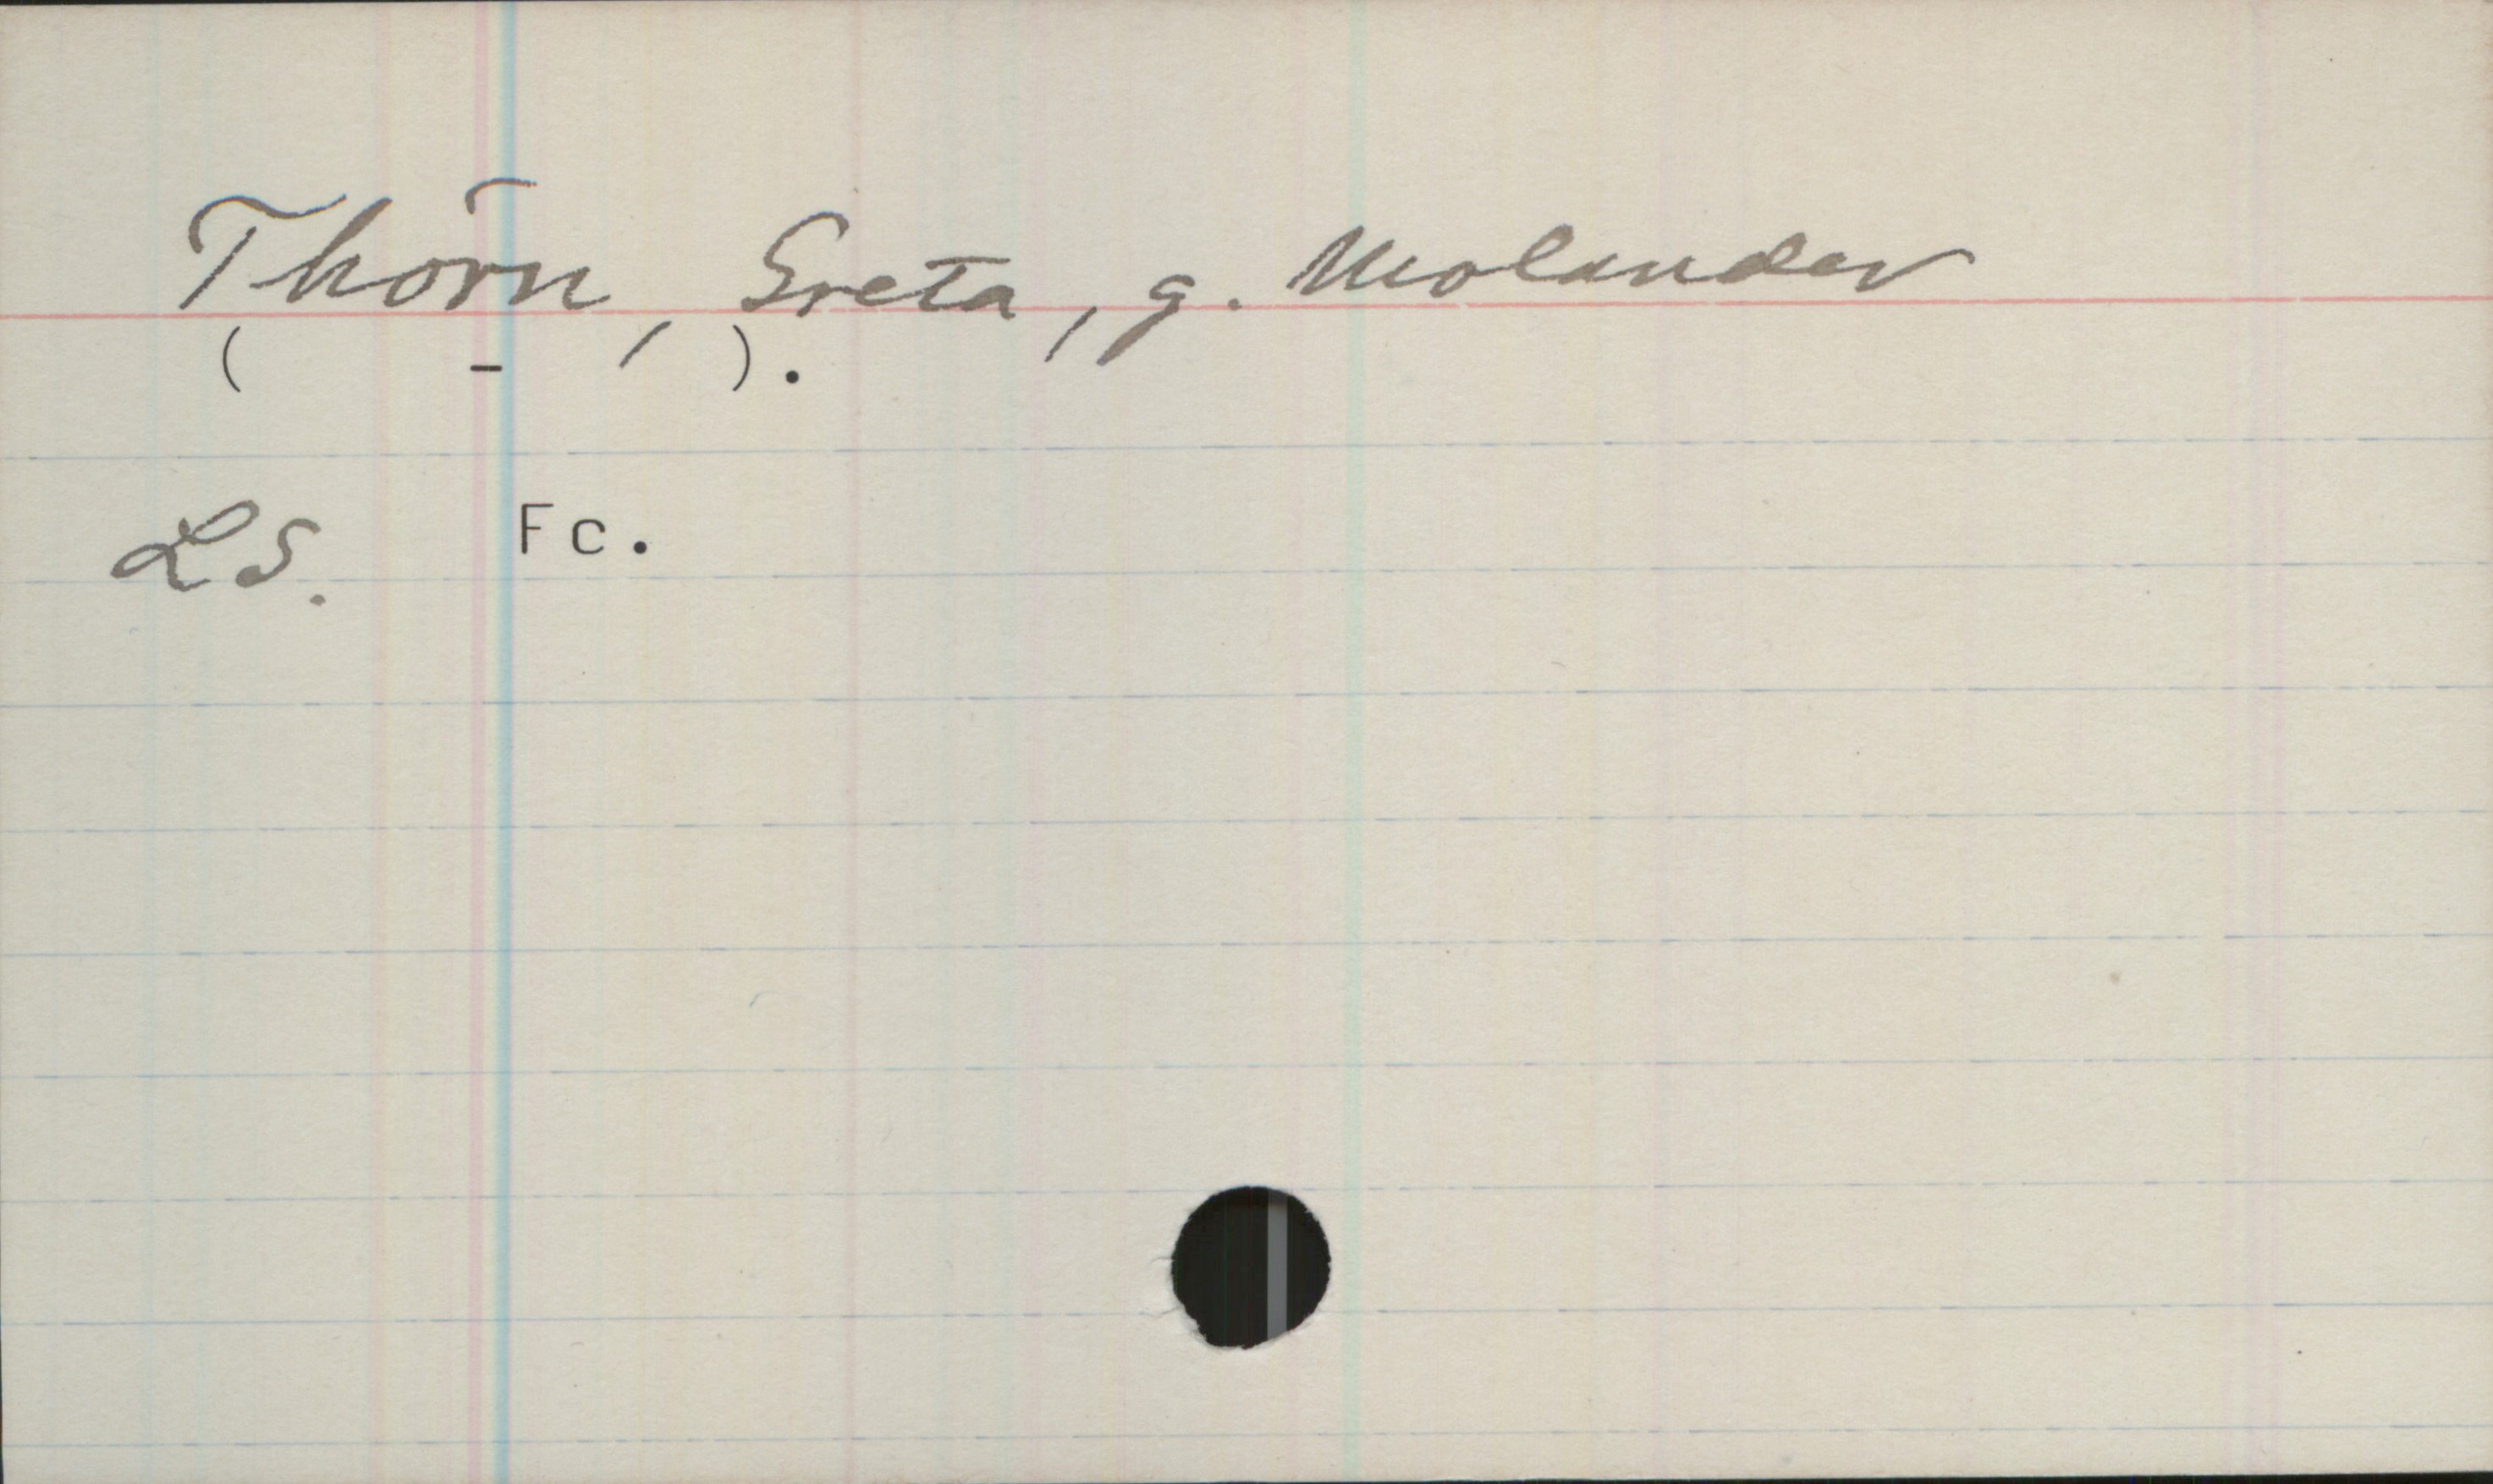 Thörn, Greta, g. Molander
( - ).
LS. Fc.